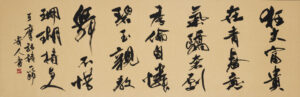 狂夫富貴
在青春意
氣驕奢劇
季倫自憐
碧玉親教
舞不惜
珊瑚持與
人
王摩詰詩